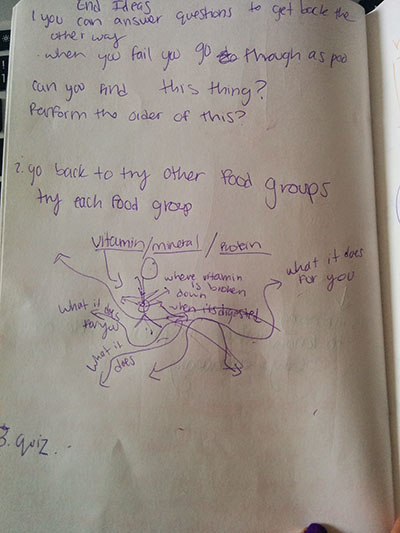 End Ideas
1 you can answer questions to get back the
other way
- when you fail you go though as poo
can you find this thing?
Perform the order of this?
2. go back to try other food groups
try each food group
vitamin/mineral/protein
where vitamin
is broken
down
when its digested
what it does
for you
what it does
for you
what it
does
3. quiz.